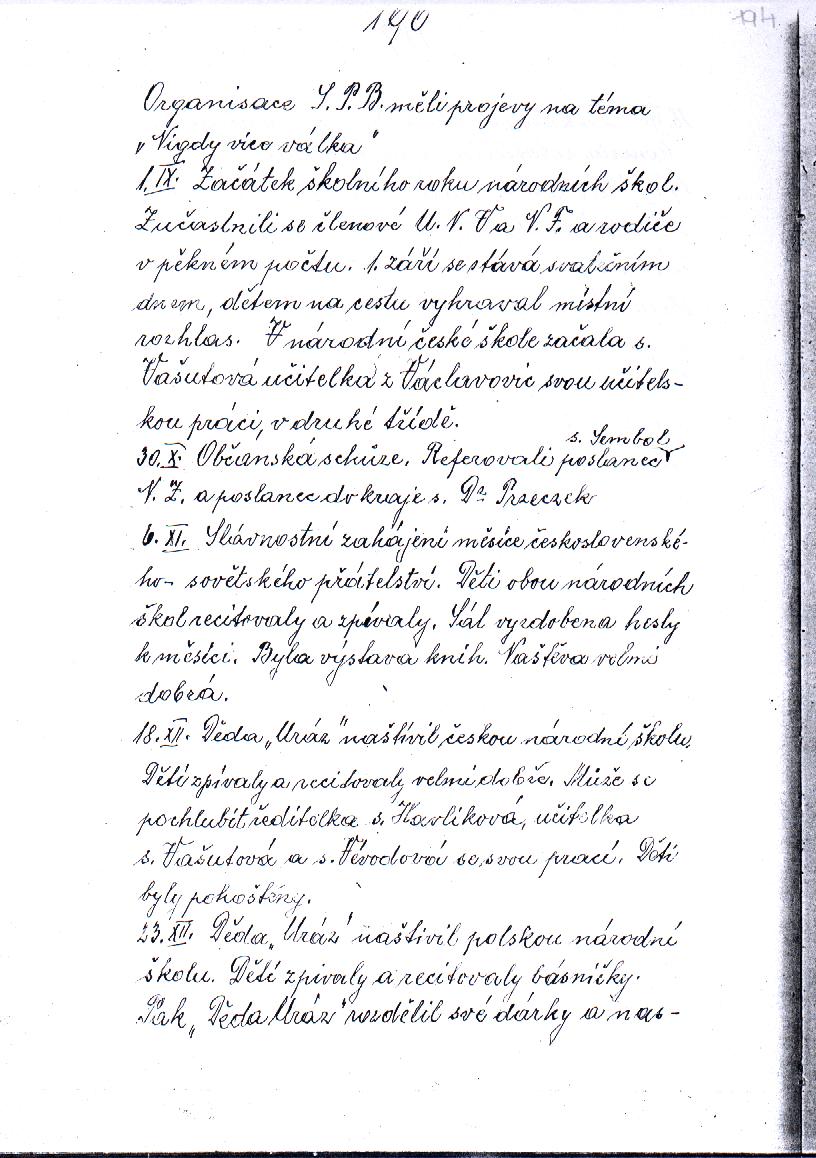 190
194
Organisace S. P. B. měli projevy na téma
„Nigdy více válka"
1. IX. Začátek školního roku národních škol.
Zučastnili se členové M. N. V a N. F. a rodiče
v pěkném počtu. 1. září se stává svatečním
dnem, dětem na cestu vyhraval místní
rozhlas. V národní české škole začala s.
Vašutová učitelka z Václavovic svou učitels-
kou práci, v druhé třídě.
s. Sembol
30. X. Občanská schůze. Referovali poslanec
N. Z. a poslanec do kraje s. Dr Przeczek
6. XI. Slávnostní zahájení měsíce československé-
ho- sovětského přátelství. Děti obou národních
škol recitovaly a zpívaly. Sál vyzdobena hesly
k měsíci. Byla výstava knih. Naštěva velmi
dobrá.
18. XII. Děda „Mráz" naštívil českou národní školu.
Děti zpívaly a recitovaly velmi dobře. Může se
pochlubit ředitelka s. Havlíková, učitelka
s. Vašutová a s. Vévodová se svou prací. Děti
byly pohoštěny.
23. XII. Děda „Mráz" naštívil polskou národní
školu. Děti zpívaly a recitovaly básničky.
Pak „Děda Mráz" rozdělil své dárky a nas-